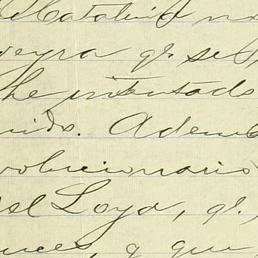 Catalina
neyra q. se
he intentado
nido. Adem
volucionario
el Loya, q.
nces, q que